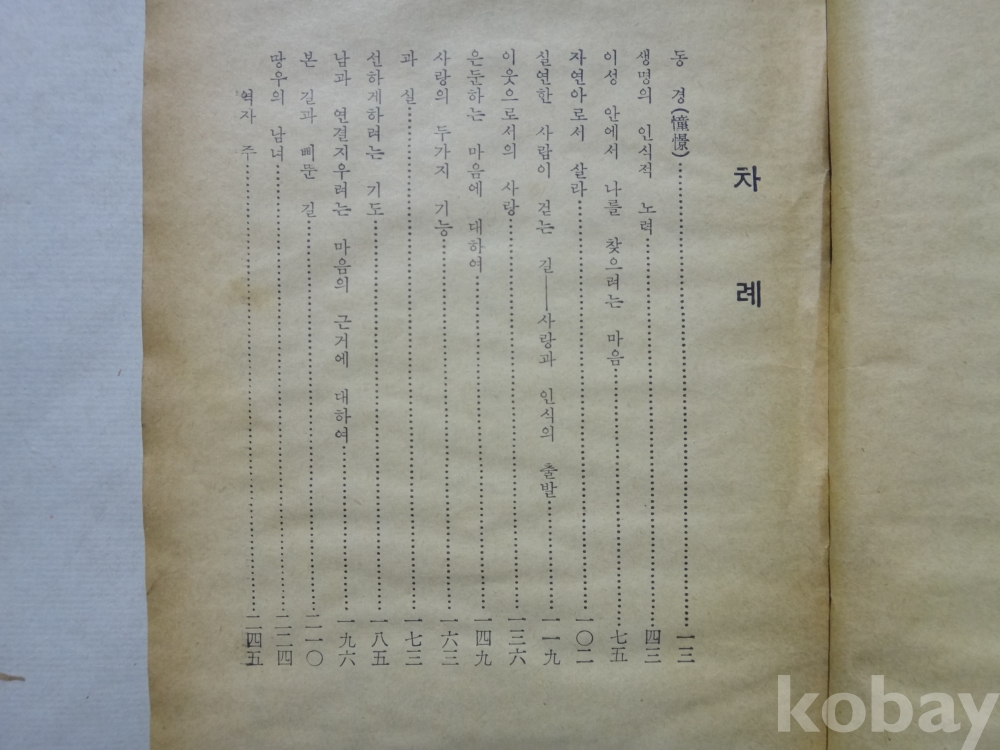 차 례
동 경(憧憬)……一三
생명의 인식적 노력……四三
이성 안에서 나를 찾으려는 마음……七五
자연아로서 살라……一〇二
실연한 사람이 걷는 길——사랑과 인식의 출발……一一九
이웃으로서의 사랑……一三六
은둔하는 마음에 대하여……一四九
사랑의 두가지 기능……一六三
과 실……一七三
선하게하려는 기도……一八五
남과 연결지우려는 마음의 근거에 대하여……一九六
본 길과 삐뚠 길……二一〇
땅우의 남녀……二二四
역자 주……二四五
kobay